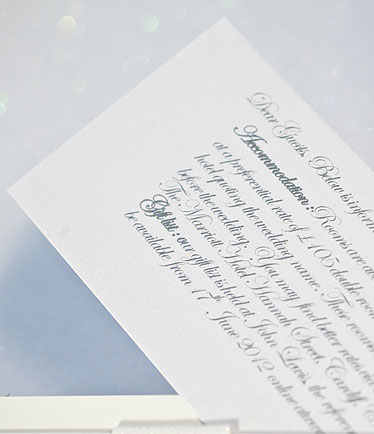 Dear Guests, Below is inform
Accommodation: Rooms are a
at a preferential rate of £105 double room
hotel quoting the wedding name. These rooms
before the wedding. You may find better rates on
The Marriott Hotel, Hannah Street, Cardiff, C
Gift list: our gift list is held at John Lewis, the refere
be available from 17th June 2012 online, throu